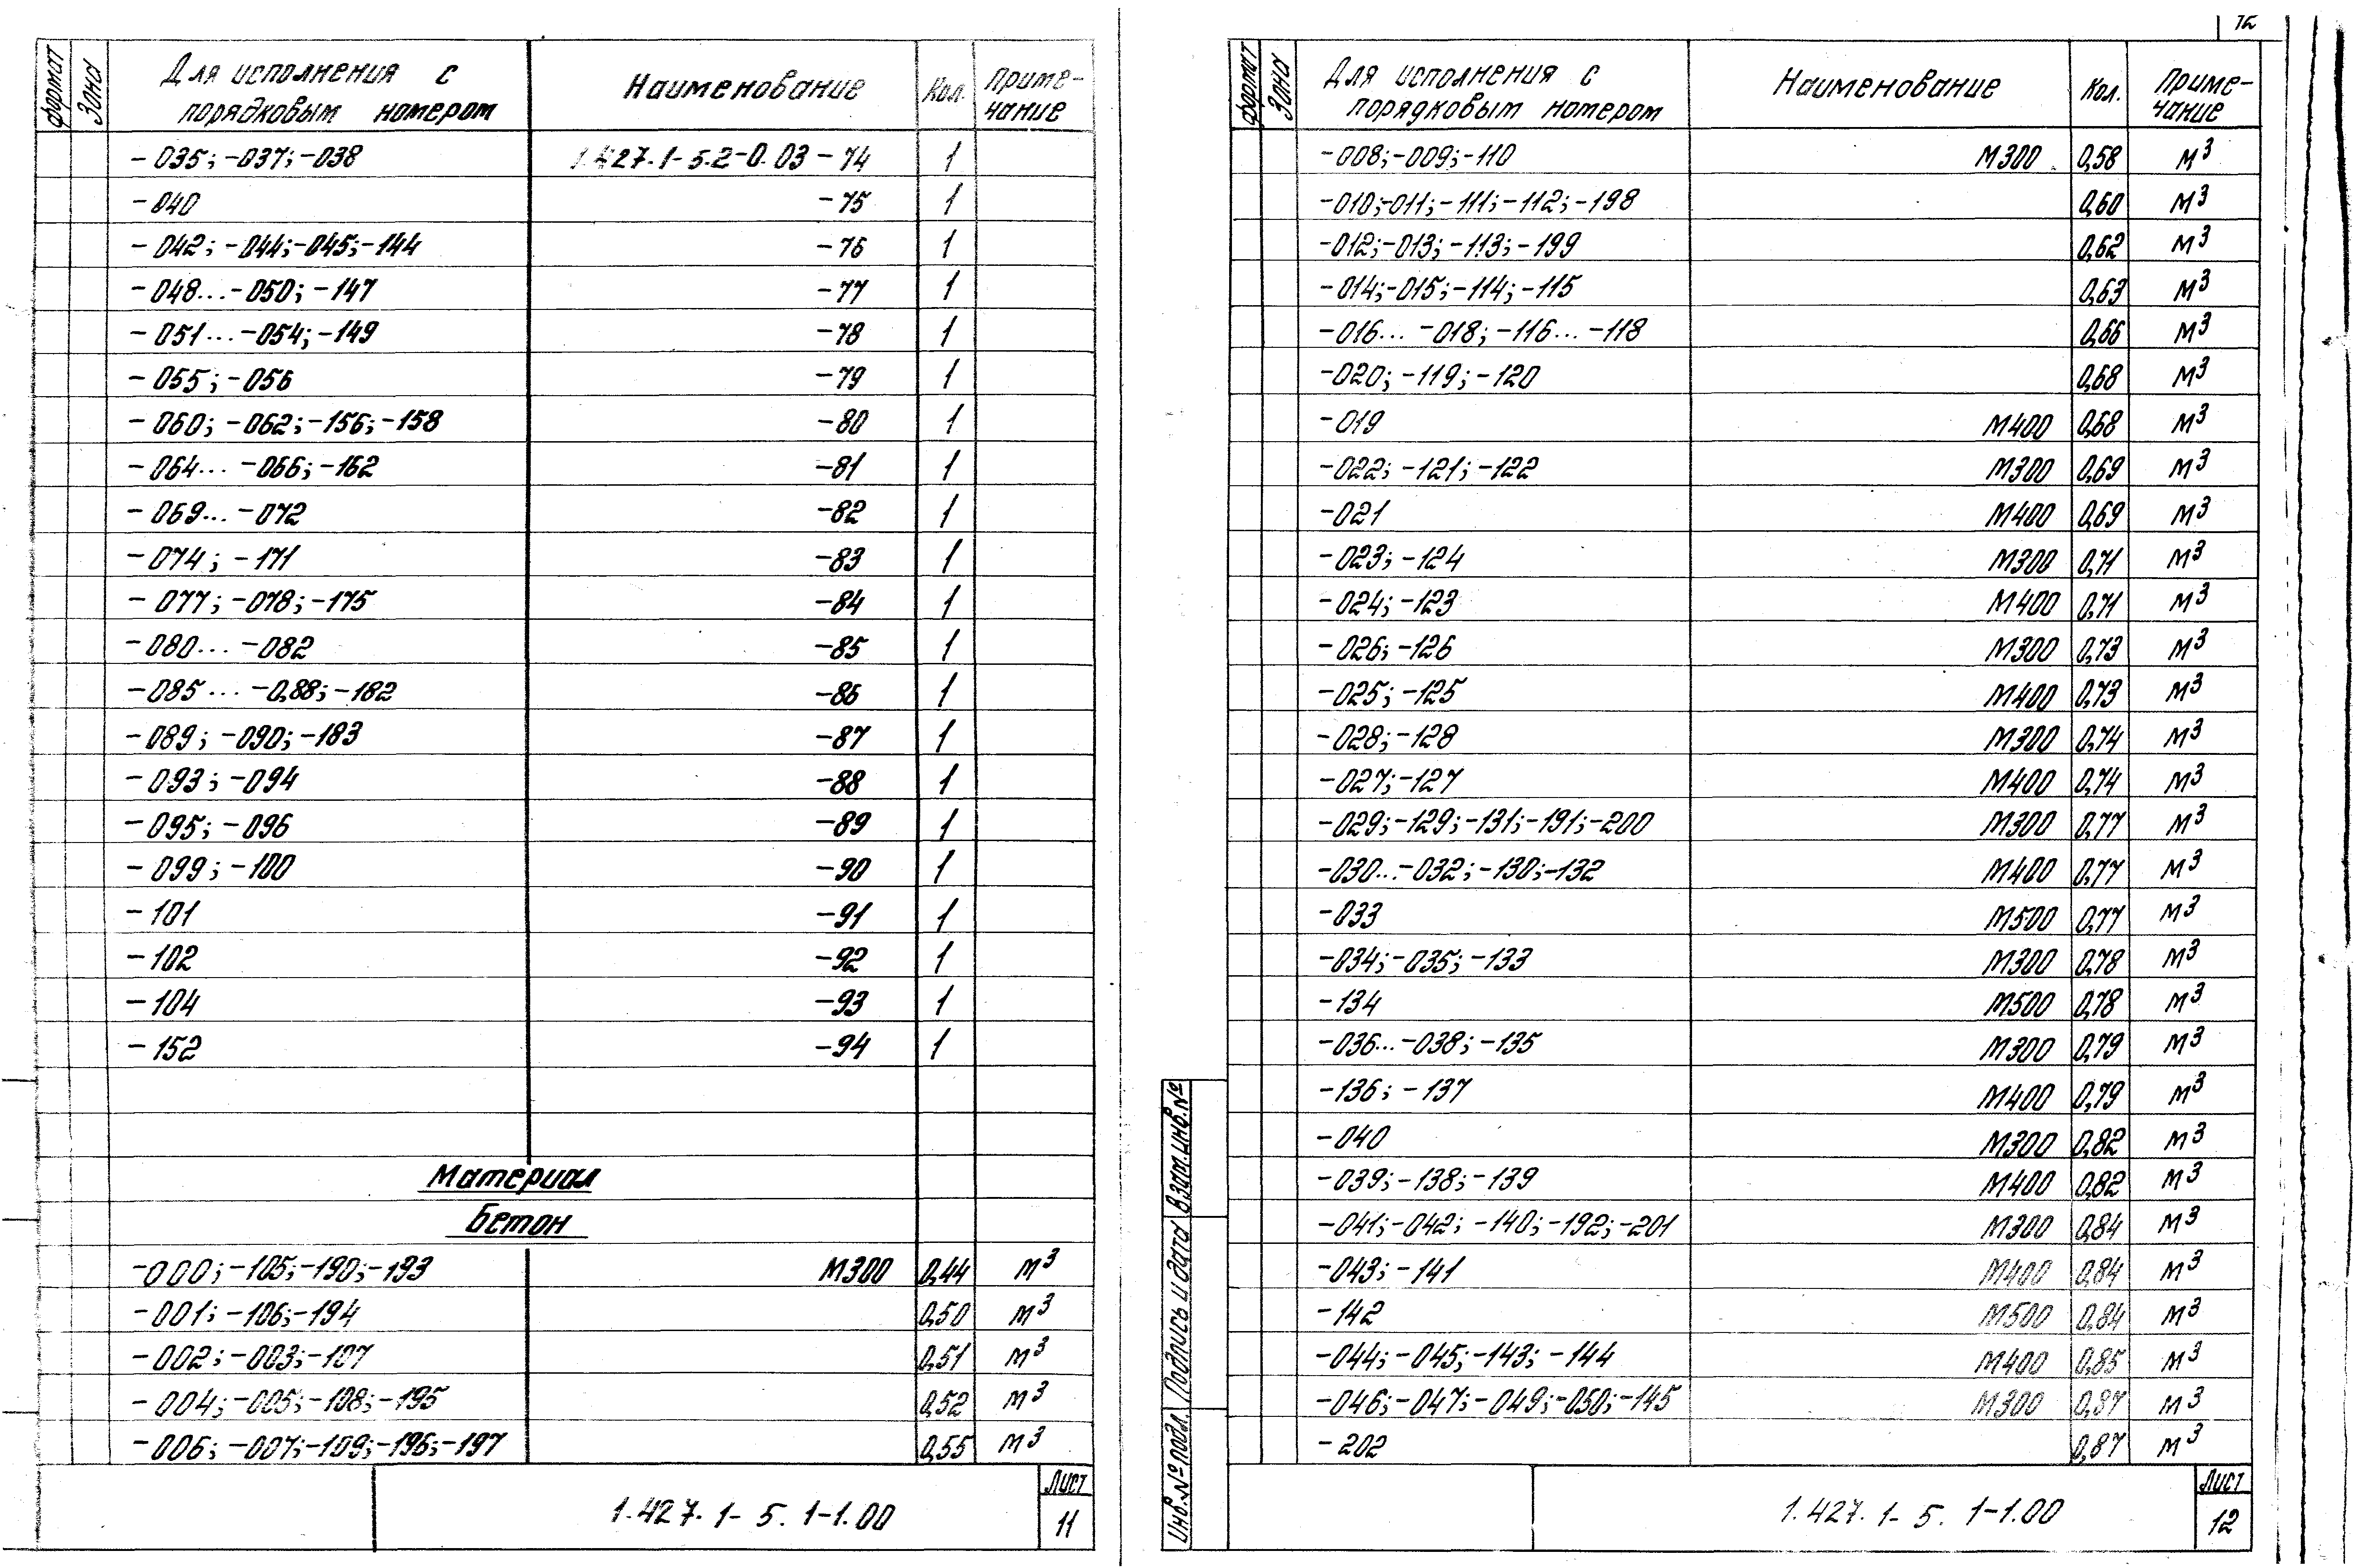 формат Зона Для исполнения с порядковым номером Наименование Кол. Приме-чание
-035; -037; -038 1.427.1-5.2-0.03 -74 1
-040 -75 1
-042; -044; -045; -144 -76 1
-048... -050; -147 -77 1
-051... -054; -149 -78 1
-055; -056 -79 1
-060; -062; -156; -158 -80 1
-064... -066; -162 -81 1
-069... -072 -82 1
-074; -171 -83 1
-077; -078; -175 -84 1
-080... -082 -85 1
-085... -0,88; -182 -86 1
-089; -090; -183 -87 1
-093; -094 -88 1
-095; -096 -89 1
-099; -100 -90 1
-101 -91 1
-102 -92 1
-104 -93 1
-152 -94 1
Материал
Бетон
-000; -105; -190; -193 М300 0,44 м³
-001; -106; -194 0,50 м³
-002; -003; -107 0,51 м³
-004; -005; -108; -195 0,52 м³
-006; -007; -109; -196; -197 0,55 м³
1.427.1-5.1-1.00
Лист
11
12
формат Зона Для исполнения с порядковым номером Наименование Кол. Приме-чание
-008; -009; -110 М300 0,58 м³
-010; -011; -111; -112; -198 0,60 м³
-012; -013; -113; -199 0,62 м³
-014; -015; -114; -115 0,63 м³
-016... -018; -116... -118 0,66 м³
-020; -119; -120 0,68 м³
-019 М400 0,68 м³
-022; -121; -122 М300 0,69 м³
-021 М400 0,69 м³
-023; -124 М300 0,71 м³
-024; -123 М400 0,71 м³
-026; -126 М300 0,73 м³
-025; -125 М400 0,73 м³
-028; -128 М300 0,74 м³
-027; -127 М400 0,74 м³
-029; -129; -131; -191; -200 М300 0,77 м³
-030... -032; -130; -132 М400 0,77 м³
-033 М500 0,77 м³
-034; -035; -133 М300 0,78 м³
-134 М500 0,78 м³
-036... -038; -135 М300 0,79 м³
-136; -137 М400 0,79 м³
-040 М300 0,82 м³
-039; -138; -139 М400 0,82 м³
-041; -042; -140; -192; -201 М300 0,84 м³
-043; -141 М400 0,84 м³
-142 М500 0,84 м³
-044; -045; -143; -144 М400 0,85 м³
-046; -047; -049; -050; -145 М300 0,87 м³
-202 0,87 м³
Инв.№ подл. Подпись и дата Взам.инв.№
1.427.1-5.1-1.00
Лист
12